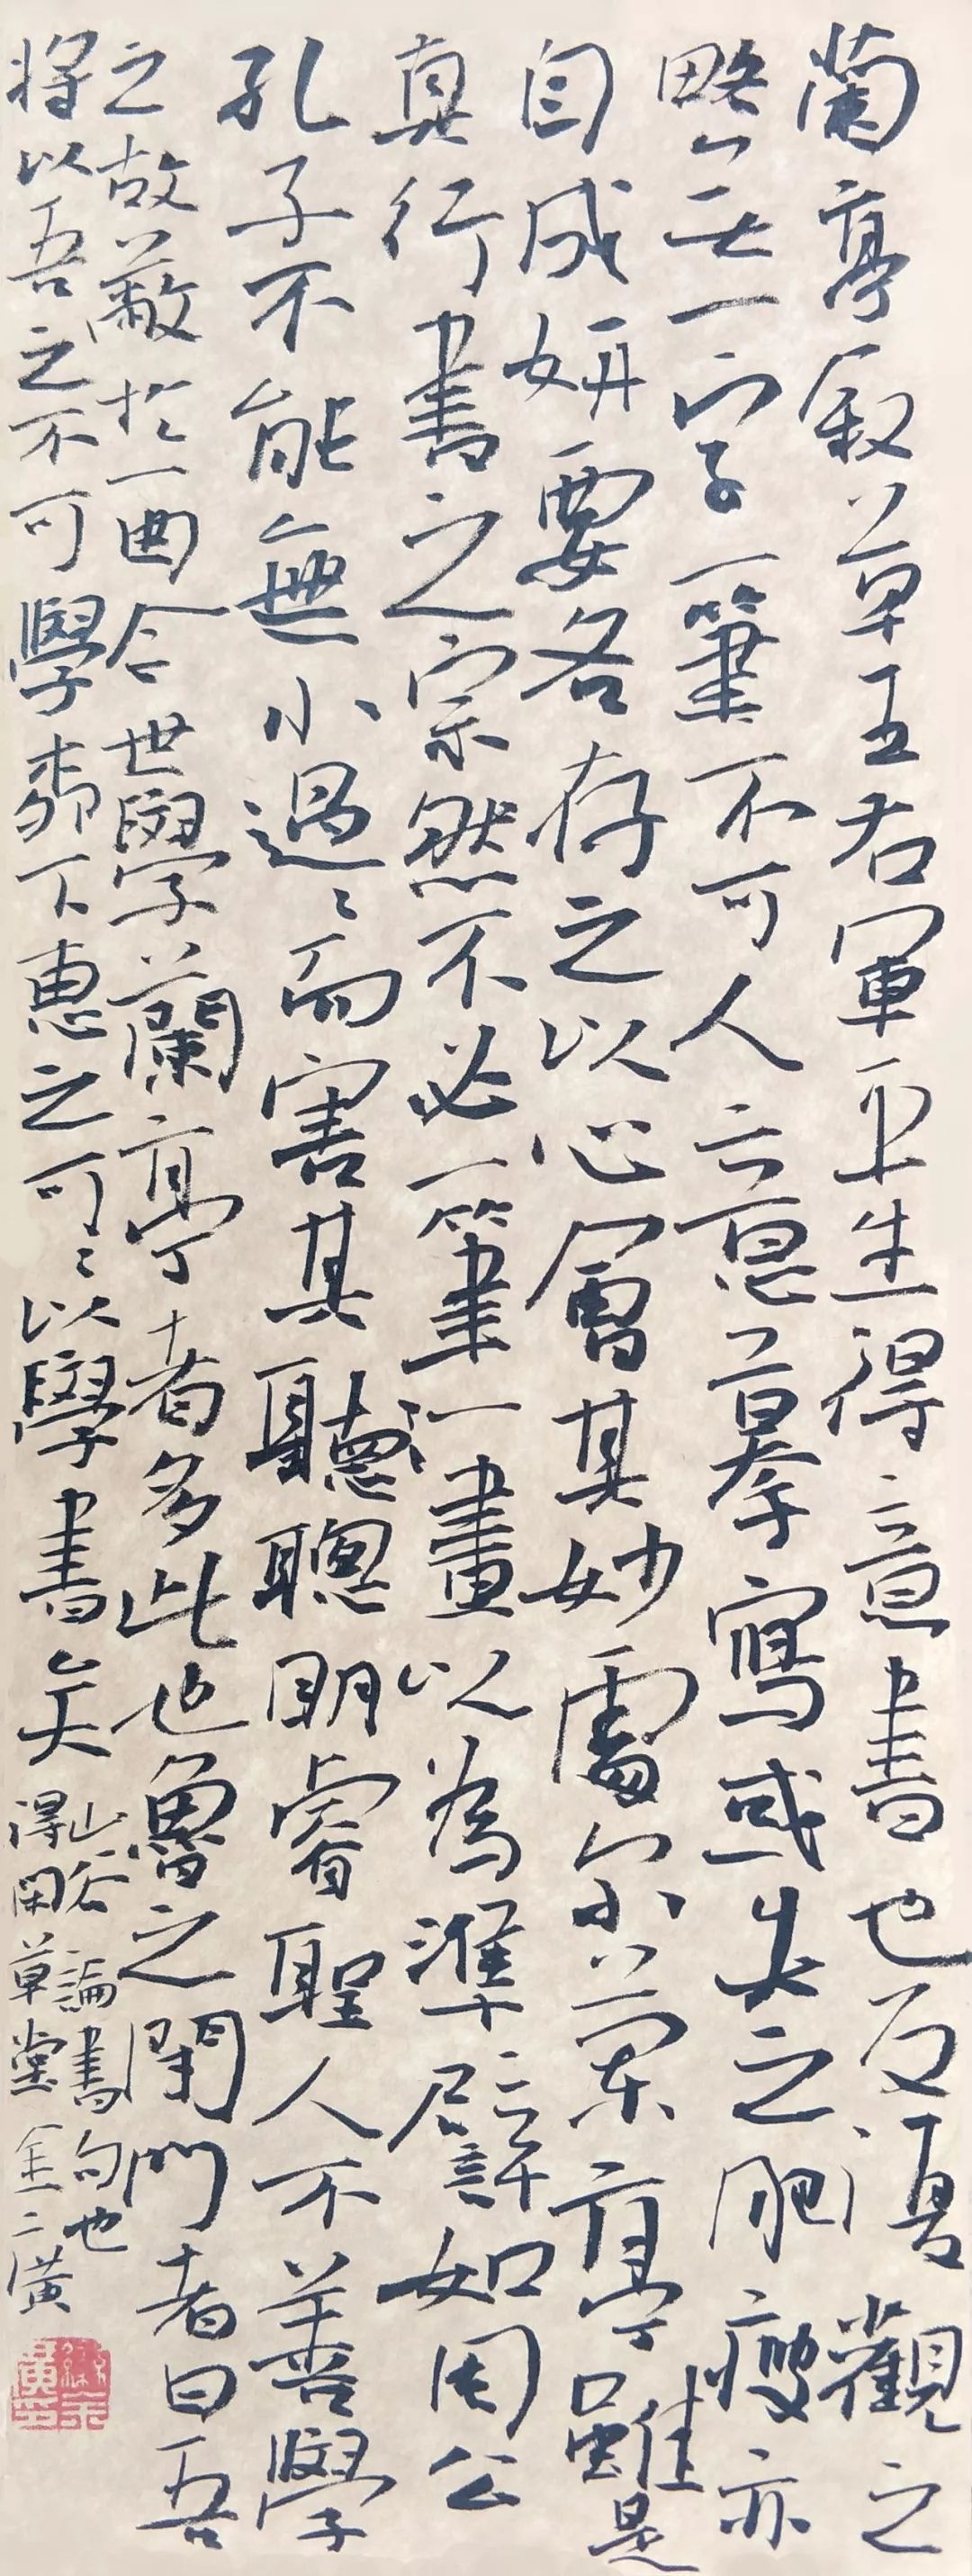 蘭亭叙草王右軍平生得意書也反復觀之
略無一字一筆不可人意摹寫或失之肥瘦亦
自成妍要各存之以心會其妙處尒蘭亭雖是
真行書之宗然不必一筆一畫以為準譬如周公
孔子不能無小過過而害其聽聰明睿聖人不善學
之故蔽於一曲今世學蘭亭者多此也魯之閉門者曰吾
將以吾之不可學柳下惠之可可以學書矣
山谷論書句也
得閑草堂金二黃